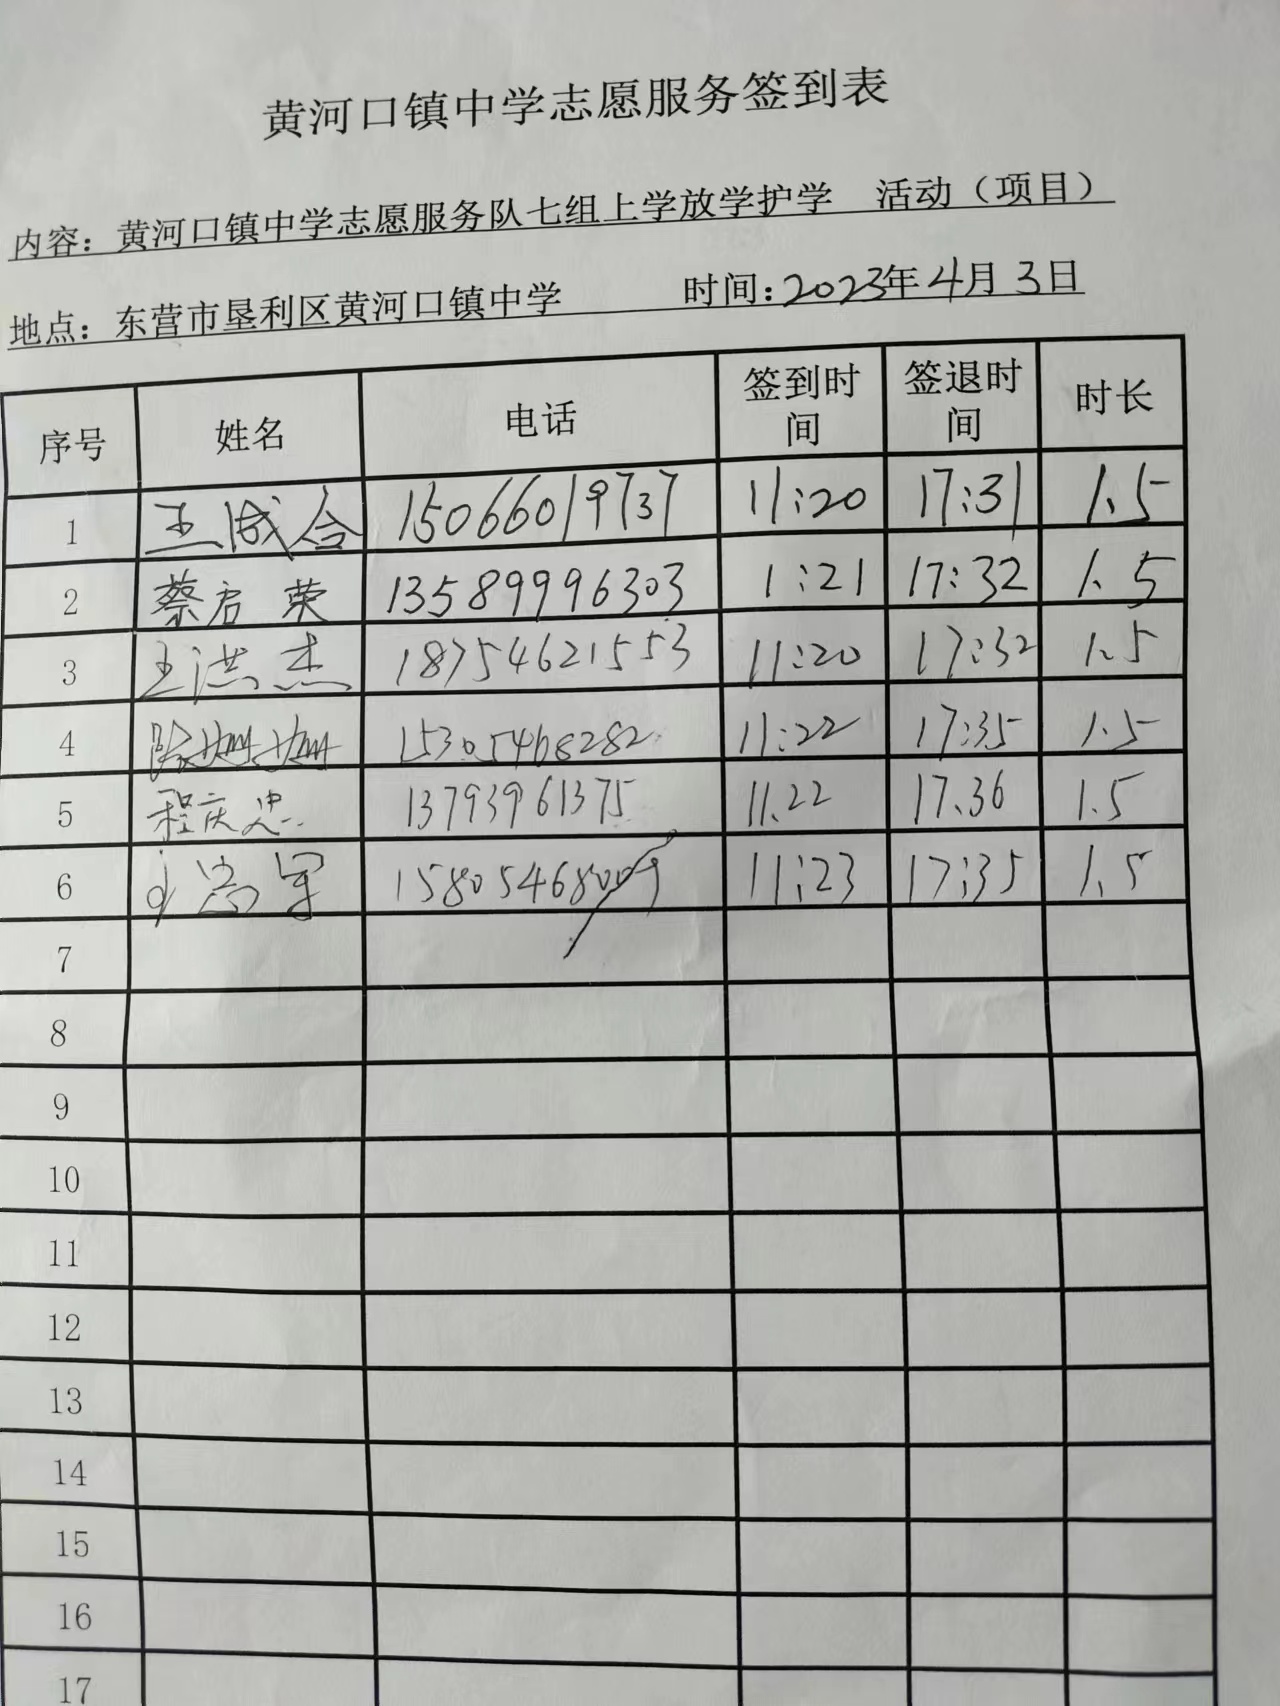 黄河口镇中学志愿服务签到表
内容：黄河口镇中学志愿服务队七组上学放学护学 活动（项目）
地点：东营市垦利区黄河口镇中学 时间：2023年4月3日
序号 姓名 电话 签到时间 签退时间 时长
1 王成合 15066019737 11:20 17:31 1.5
2 蔡启荣 13589996303 1:21 17:32 1.5
3 王洪杰 18754621553 11:20 17:32 1.5
4 陈姗姗 15305468282 11:22 17:35 1.5
5 程庆忠 13793961375 11.22 17.36 1.5
6 15805468009 11:23 17:35 1.5
7
8
9
10
11
12
13
14
15
16
17